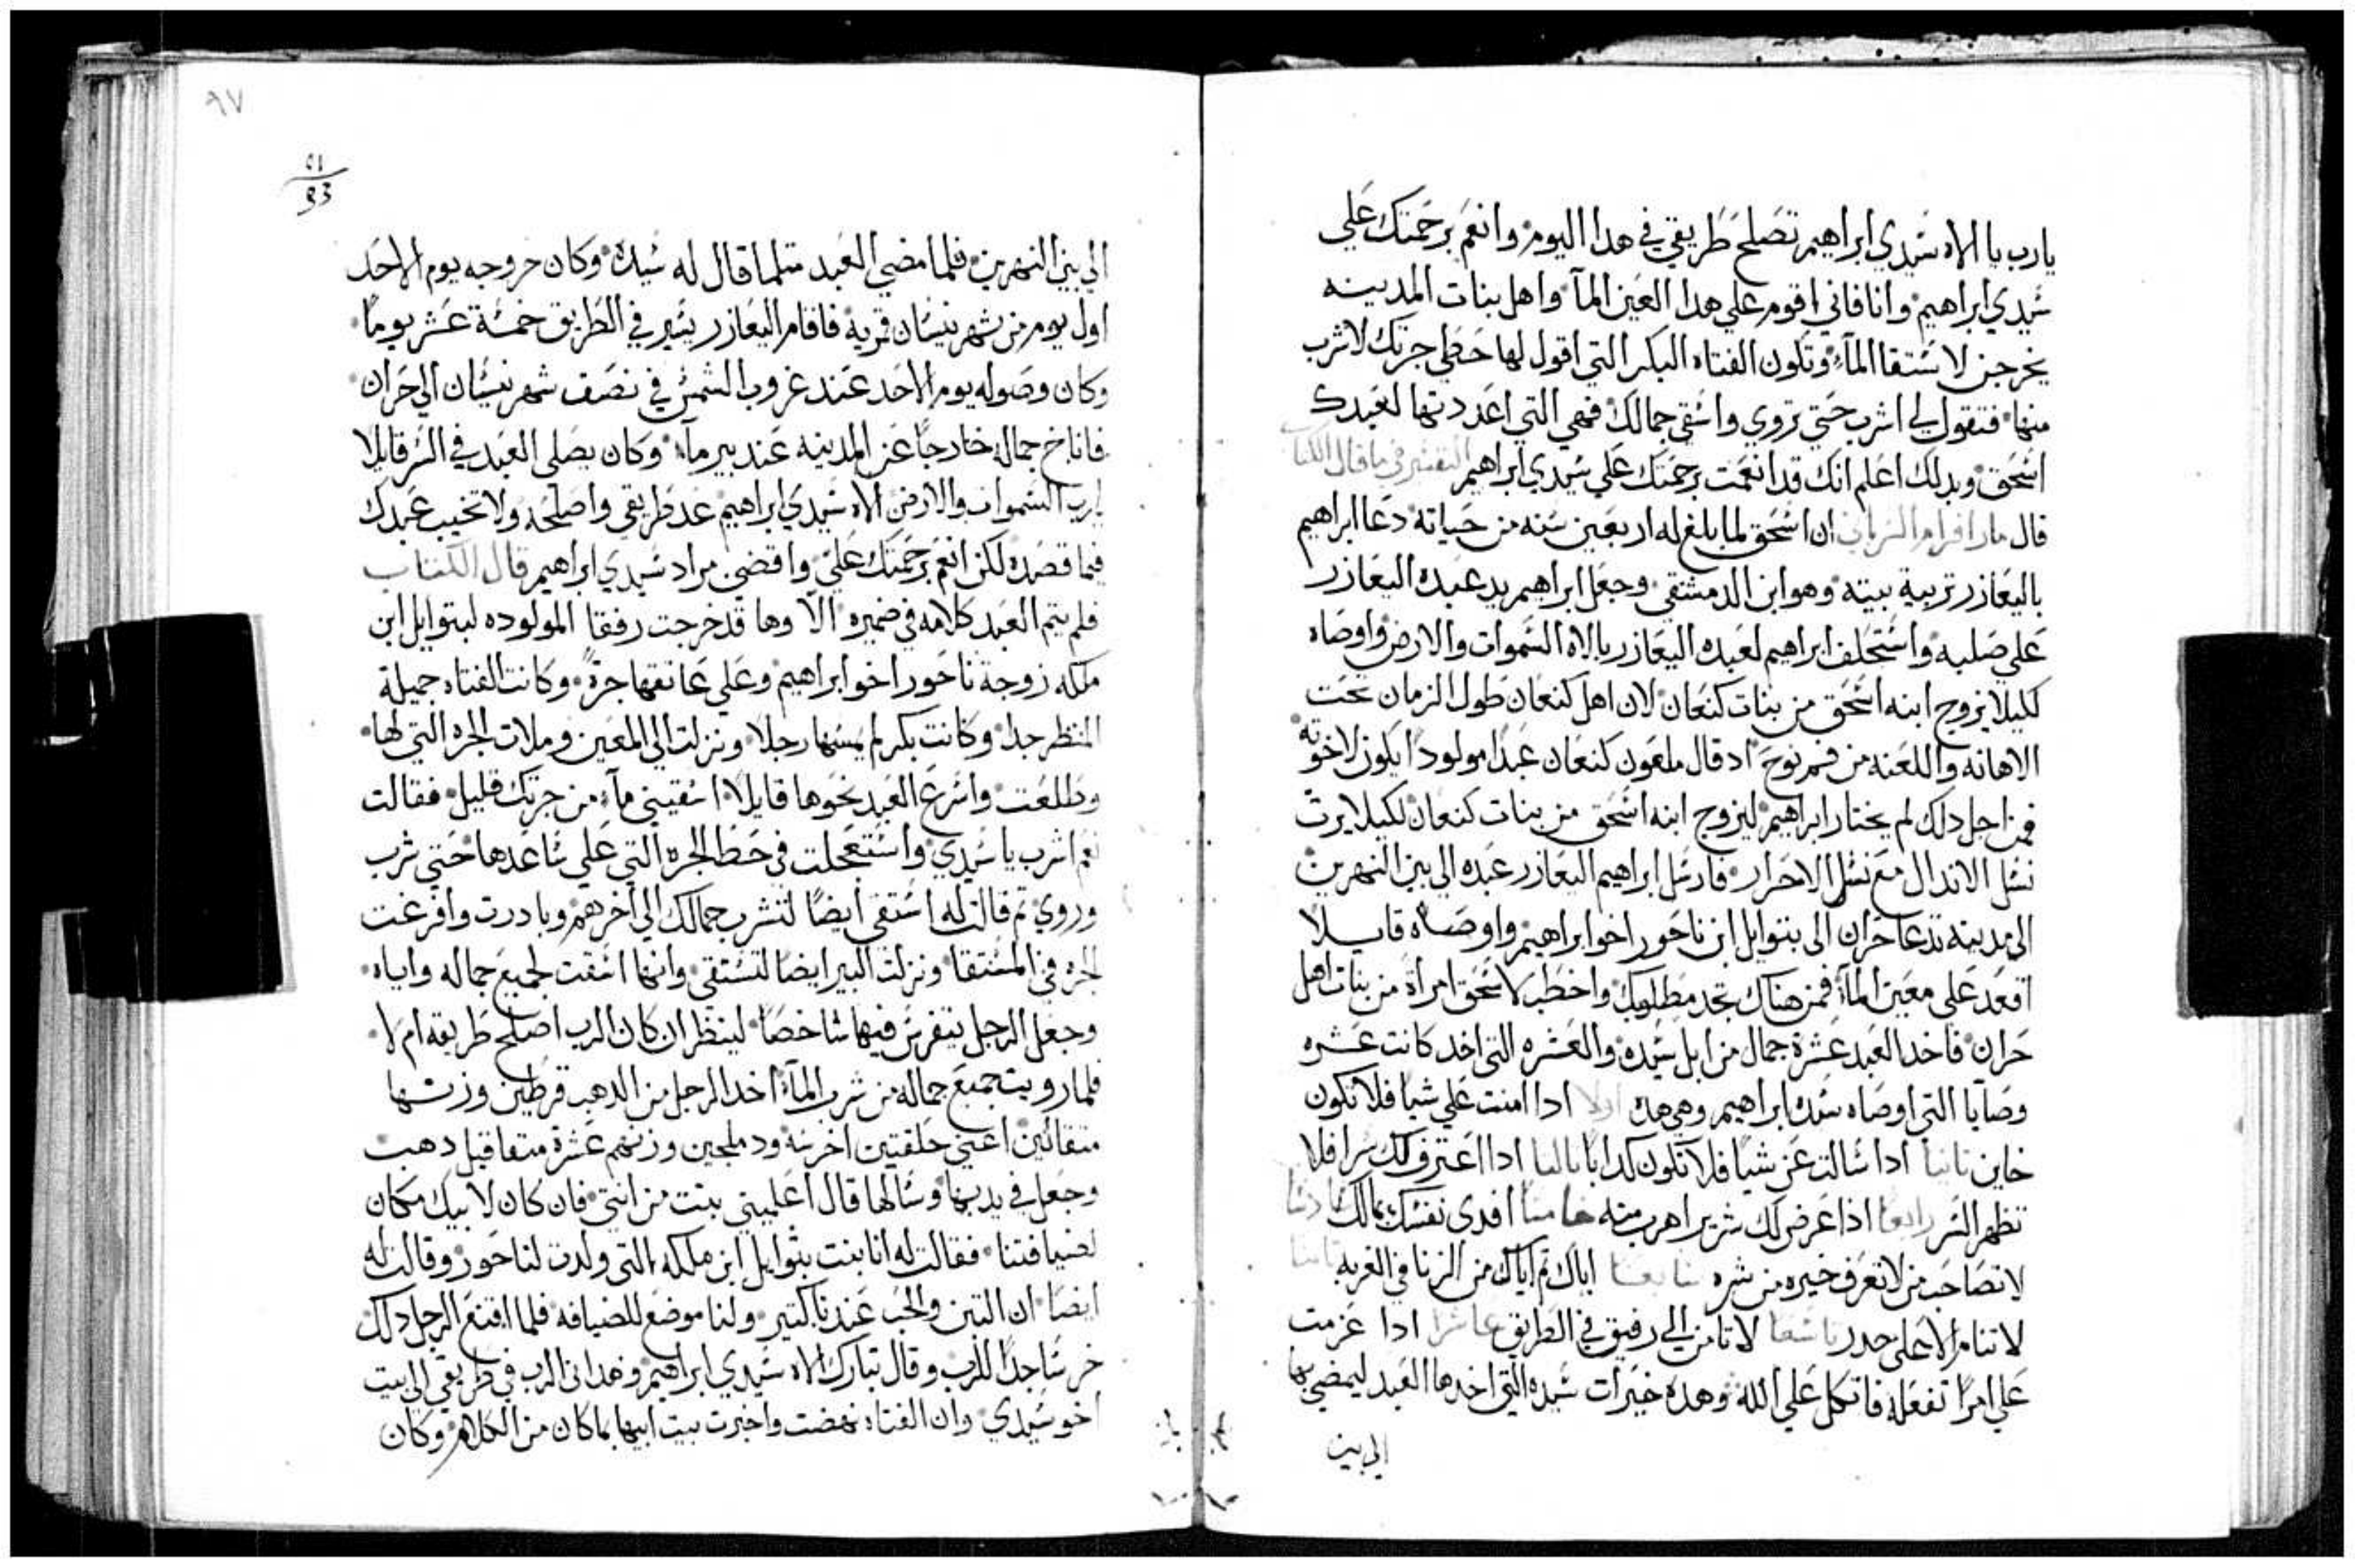 يارب يا الاه سَيدي ابراهيم تصَلح طَريقي في هدا اليوم وانعَم برحَمتك عَلي
سَيدي ابراهيم وانا فاني اقوم علي هدا العَين المآ واهل بنات المدينه
يخرجن لاستقا المآء وتكون الفتاه البكر التي اقول لها حَطي جرتك لاشرب
منها فتقول لي اشرب حَتي تروي واسَقي جمالك فهي التي اعَددتها لعَبدك
اسَحَق وبدلك اعَلم انك قد انعَمت برحَمتك عَلي سَيدي ابراهيم التفسير في ما قال الكتاب
قال مار افرام السرياني ان اسَحَق لما بلغ له اربعَين سَنه من حَياته دعَا ابراهيم
باليعَازر تربية بيته وهو ابن الدمشقي وجعَل ابراهيم يد عبَده اليعَازر
عَلي صَلبه واستَحَلف ابراهيم لعَبده اليعَازر بالاه السَموات والارض واوصَاه
لكيلا يزوج ابنه اسَحَق من بنات كنعَان لان اهل كنعَان طول الزمان تحَت
الاهانه واللعَنه من فم نوحَ اد قال ملعَون كنعَان عَبدًا مولودًا يكون لاخوته
فمن اجل دلك لم يختار ابراهيم ليزوج ابنه اسَحَق من بنات كنعَان لكيلا يرث
نسَل الاندال معَ نسَل الاحَرار فارسَل ابراهيم اليعَازر عَبده الي بين النهرين
الي مدينه تدعَا حَران الي بتوايل ابن ناحَور اخو ابراهيم واوصَاه قايلا
اقعَد عَلي معَين المآء فمن هناك تجد مطلوبك واخطب لاسَحَق امراة من بنات اهل
حَران فاخد العَبد عَشرة جمال من ابل سَيده والعَشره التي اخد كانت عَشره
وصَايا التي اوصَاه سَيده ابراهيم وهي هده اولا ادا امنت عَلي شيا فلا تكون
خاين تانيا ادا سَالت عَن شيا فلا تكون كدابا تالتا ادا اعَترف لك سرا فلا
تظهر السَر رابعا اذا عَرض لك شرير اهرب منه خامسا افدي نفسَك بمالك سادسا
لا تصَاحَب من لا تعَرف خيره من شره سابعا اياك تم اياك من الزنا في الغربه تامنا
لا تنام الا عَلي حدر تاسعا لا تامن الي رفيق في الطريق عاشرا ادا عَزمت
عَلي امرًا تفعَله فاتكل عَلي الله وهده خيرات سَيده التي اخدها العَبد ليمضي بها
الي بين
٩٧
93
الي بين النهرين فلما مضي العَبد متلما قال له سَيده وكان خروجه يوم الاحَد
اول يوم من شهر نيسَان قمريه فاقام اليعَازر يسَير في الطَريق خمسَة عَشر يومًا
وكان وصَوله يوم الاحَد عَند غروب الشمسَ في نصَف شهر نيسَان الي حَران
فاناخ جماله خارجًا عَن المدينه عَند بير مآء وكان يصَلي العَبد في السَر قايلا
يارب السَموات والارض الاه سَيدي ابراهيم عَد طريقي واصَلحَه ولا تخيب عَبدك
فيما قصَده لكن انعَم برحَمتك عَليّ واقضي مراد سَيدي ابراهيم قال الكتاب
فلم يتم العَبد كلامه في ضميره الا وها قد خرجت رفقا المولوده لبتوايل ابن
ملكه زوجة ناحَور اخو ابراهيم وعَلي عَاتقها جرةً وكانت الفتاه جميلة
المنظر جدا وكانت بكر لم يمسَها رجلا ونزلت الي المعَين وملات الجره التي لها
وطلعَت واسَرعَ العَبد نحَوها قايلا اسَقيني مآء من جرتك قليل فقالت
نعَم اشرب يا سَيدي واستَعَجلت في حَط الجره التي عَلي سَاعَدها حَتي شرب
وروي تم قالت له اسَتقي ايضًا لتشرب جمالك الي اخرهم وبادرت وافرغت
الجره في المسَتقا ونزلت البير ايضا لتسَتقي وانها اسَقت لجميعَ جماله واياه
وجعَل الرجل يتفرسَ فيها شاخصًا لينظر ان كان الرب اصَلحَ طَريقه ام لا
فلما رويت جميعَ جماله من شرب المآء اخد الرجل من الدهب قرطين وزنها
متقالين اعَني حَلقتين اخرسَه ودملجين وزنهم عَشرة متقاقيل دهب
وجعَل في يديها وسَالها قال اعَلميني بنت من انتي فان كان لابيك مكان
لضيافتنا فقالت له انا بنت بتوايل ابن ملكه التي ولدت لناحَور وقالت له
ايضَا ان التبن والحَب عَندنا كتير ولنا موضعَ للضيافه فلما اقتنعَ الرجل دلك
خر سَاجدًا للرب وقال تبارك الاه سَيدي ابراهيم وهداني الرب في طريقي الي بيت
اخو سَيدي وان الفتاه نهضت واخبرت بيت ابيها بما كان من الكلام وكان